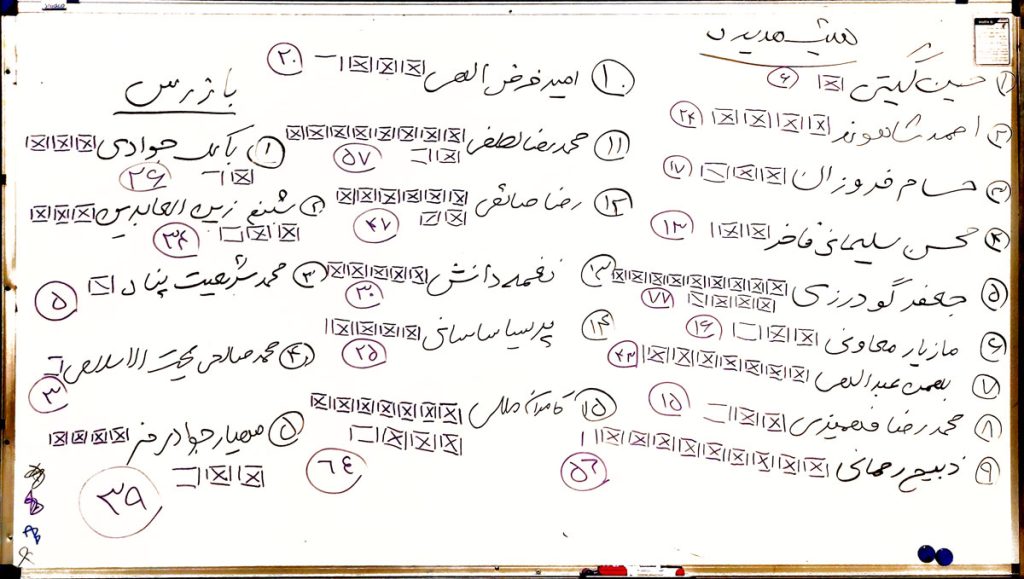 هیئت مدیره
۱ حسین گیتی ۶
۲ احمد شاهوند ۲۴
۳ حسام فروزان ۱۷
۴ محسن سلیمانی فاخر ۱۳
۵ جعفر گودرزی ۷۷
۶ مازیار معاونی ۱۶
۷ بهمن عبداللهی ۴۳
۸ محمدرضا فهمیزی ۱۵
۹ ذبیح رحمانی ۵۶
۱۰ امید فرض اللهی ۲۰
۱۱ محمدرضا لطفی ۵۷
۱۲ رضا صائقی ۴۷
۱۳ نغمه دانش ۳۰
۱۴ پرسیا ساسانی ۲۵
۱۵ کامران ملکی ۶۴
بازرس
۱ بابک جوادی ۲۶
۲ زین العابدین ۳۴
۳ محمد شریعت پناه ۵
۴ محمد صالحی حجت الاسلامی ۳
۵ مهیار جوادی فر ۳۹